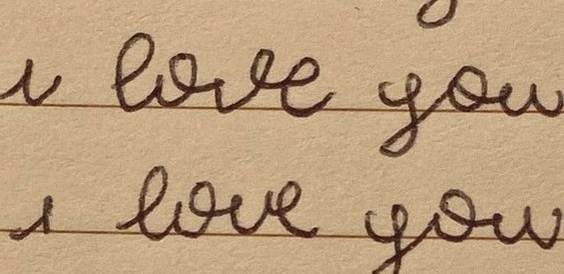 i love you
i love you